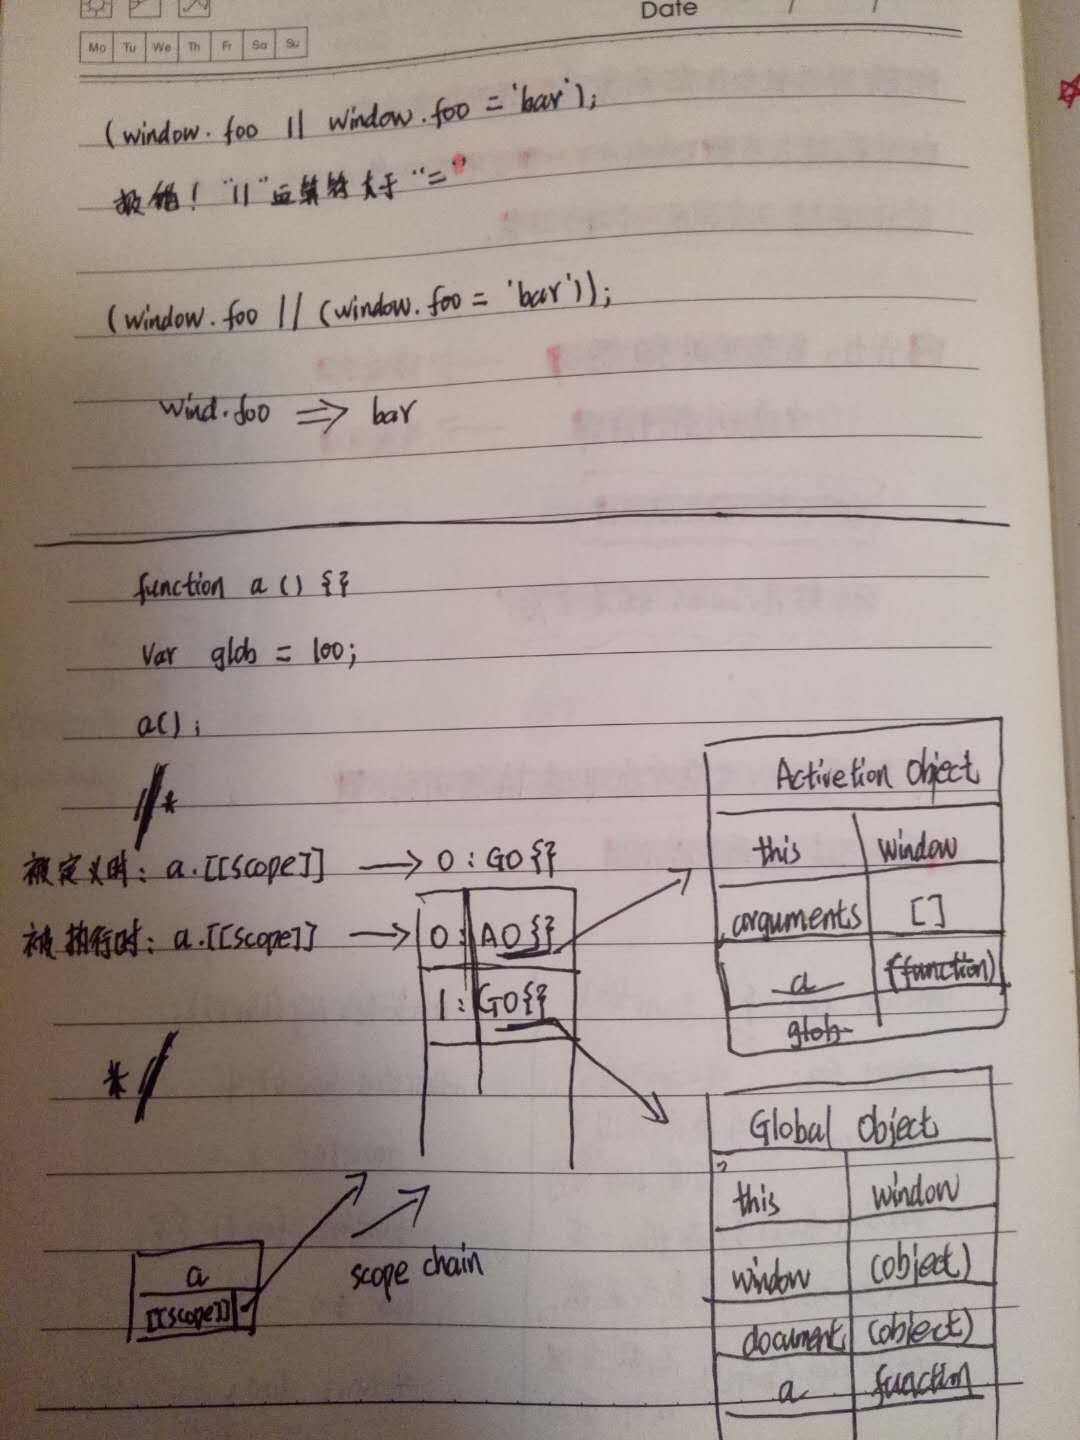 Date / /
Mo Tu We Th Fr Sa Su
(window.foo || window.foo = 'bar');
报错! "||"运算符大于"="
(window.foo || (window.foo = 'bar'));
wind.foo => bar
function a () {}
var glob = 100;
a();
//*
被定义时: a.[[scope]] → 0 : GO{}
被执行时: a.[[scope]] → 0 : AO{}
1 : GO{}
*//
Activetion Object
this window
arguments []
a (function)
glob
Global Object
this window
window (object)
document (object)
a function
scope chain
a
[[scope]]